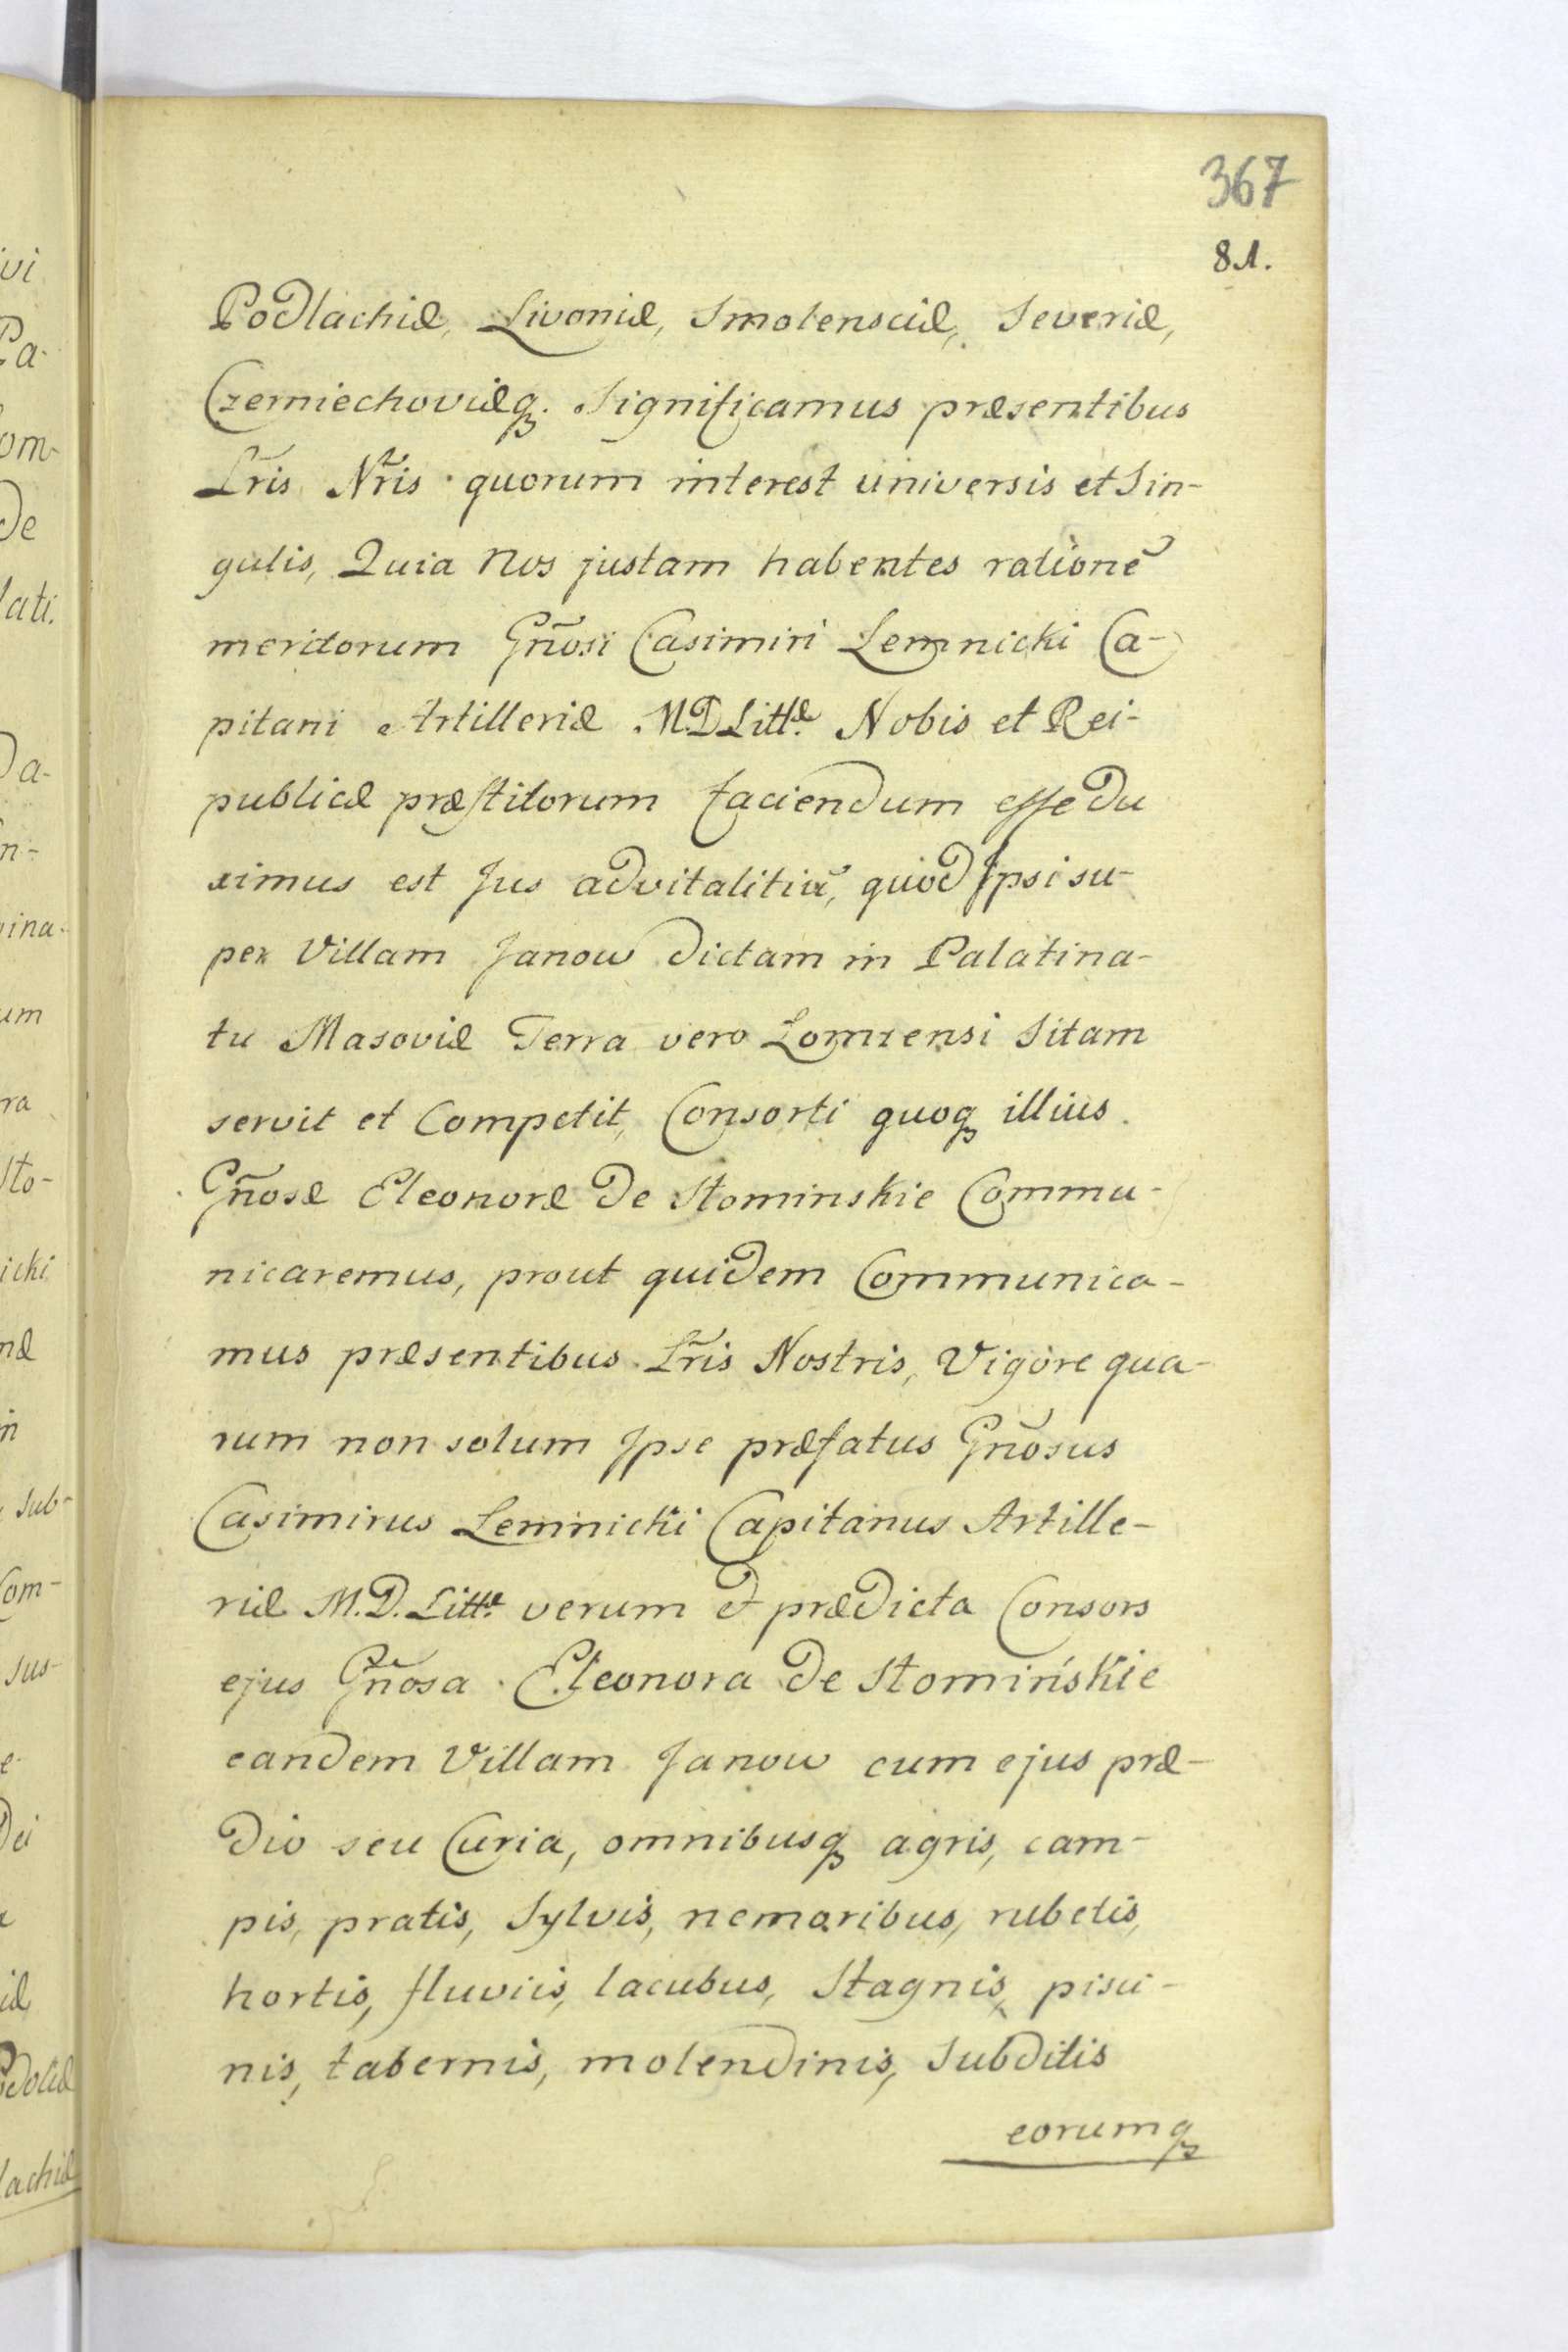 367
81.
Podlachiæ, Livoniæ, Smolensciæ, Severiæ,
Czerniechoviæq. Significamus præsentibus
Lr̃is Nr̃is quorum interest universis et Sin-
gulis, Quia Nos justam habentes rationẽ
meritorum Gñosi Casimiri Lemnicki Ca-
pitani Artilleriæ M.D. Littæ. Nobis et Rei-
publicæ præstitorum faciendum esse du
ximus est Jus advitalitiũ, quod Ipsi su-
per Villam Janow dictam in Palatina-
tu Masoviæ Terra vero Lomzensi Sitam
servit et Competit, Consorti quoq illius.
Gñosæ Eleonoræ de Stominskie Commu-
nicaremus, prout quidem Communica-
mus præsentibus Lr̃is Nostris, Vigore qua-
rum non solum Ipse præfatus Gñosus
Casimirus Lemnicki Capitanus Artille-
riæ M.D. Littæ. verum et prædicta Consors
ejus Gñosa Eleonora de Stomińskie
eandem Villam Janow cum ejus præ-
dio seu Curia, omnibusq agris, cam-
pis, pratis, Sylvis, nemoribus, rubetis,
hortis, fluviis, lacubus, Stagnis, pisci-
nis, tabernis, molendinis, Subditis
eorumq
vi
Pa-
om-
De
lati.
Da-
n-
ina-
um
ra
Sto-
icki
næ
in
Sub-
Com-
sus-
e-
Dei
iæ
Podoliæ
lachiæ